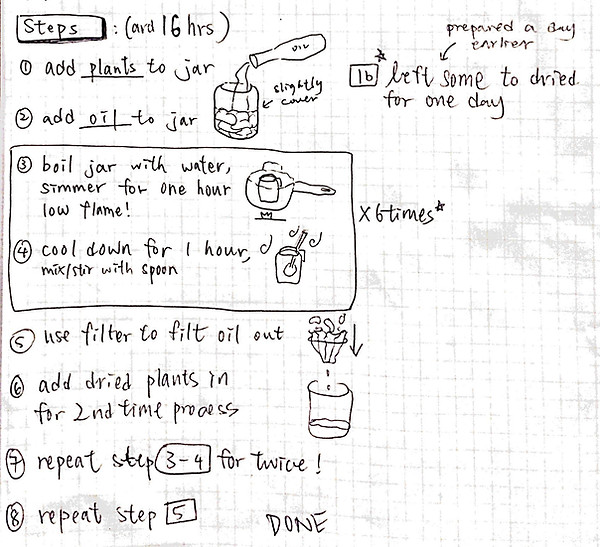 Steps : (ard 16 hrs)
① add plants to jar
OIL
slightly
cover
② add oil to jar
③ boil jar with water,
simmer for one hour
low flame!
④ cool down for 1 hour,
mix/stir with spoon
X 6 times*
⑤ use filter to filt oil out
⑥ add dried plants in
for 2nd time process
⑦ repeat step 3-4 for twice!
⑧ repeat step 5
DONE
prepared a day
earlier
1b * left some to dried
for one day